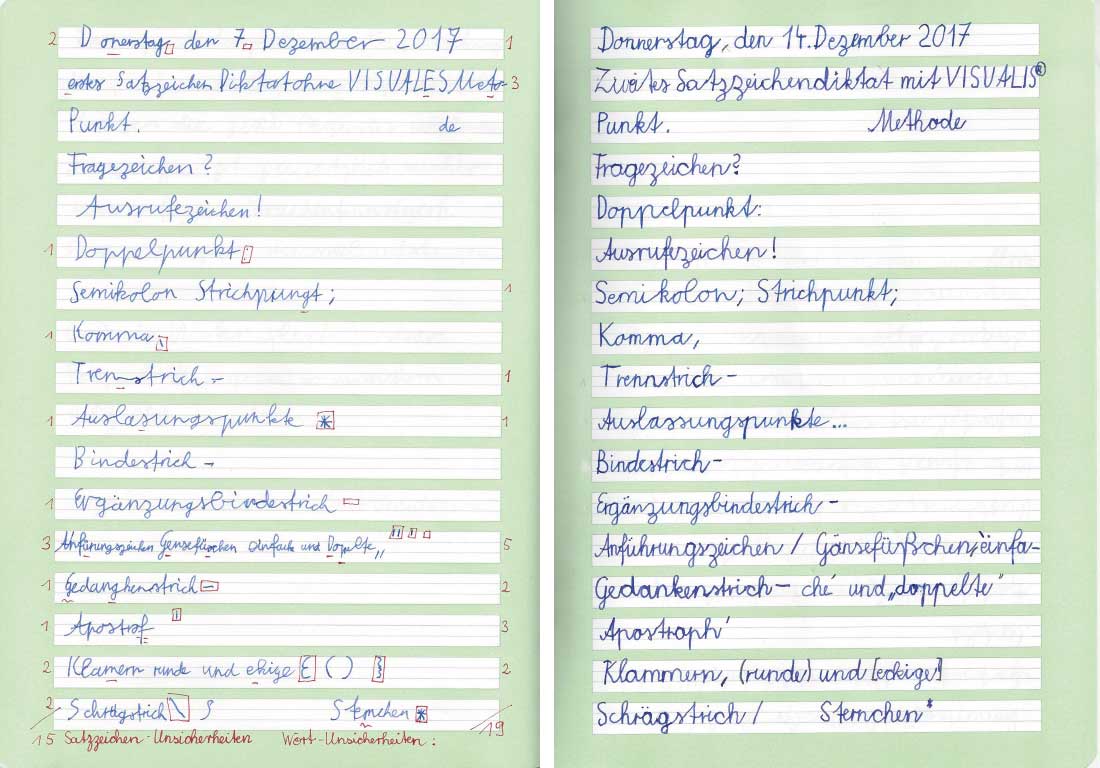 2 Donerstag den 7 Dezember 2017 1
erstes Satzzeichen Diktat ohne VISUALES Meto- 3
Punkt. de
Fragezeichen ?
Ausrufezeichen!
1 Doppelpunkt :
Semikolon Strichpungt ; 1
1 Komma \
Trenstrich - 1
1 Auslasungspunkte * 1
Bindestrich -
1 Ergänzungsbindestrich
3 Anfürungszeichen Gensefüschen einfache und Doppelte „ 5
1 Gedanghenstrich - 2
1 Apostrof 3
2 Klamern runde und ekige ( ) 2
2 Schrägstrich \ Sternchen *
15 Satzzeichen-Unsicherheiten Wort-Unsicherheiten: 19
Donnerstag, den 14. Dezember 2017
Zweites Satzzeichendiktat mit VISUALIS®
Punkt. Methode
Fragezeichen?
Doppelpunkt:
Ausrufezeichen!
Semikolon; Strichpunkt;
Komma,
Trennstrich -
Auslassungspunkte...
Bindestrich -
Ergänzungsbindestrich -
Anführungszeichen / Gänsefüßchen, ‚einfa-
Gedankenstrich – che‘ und „doppelte“
Apostroph ’
Klammern, (runde) und [eckige]
Schrägstrich / Sternchen*